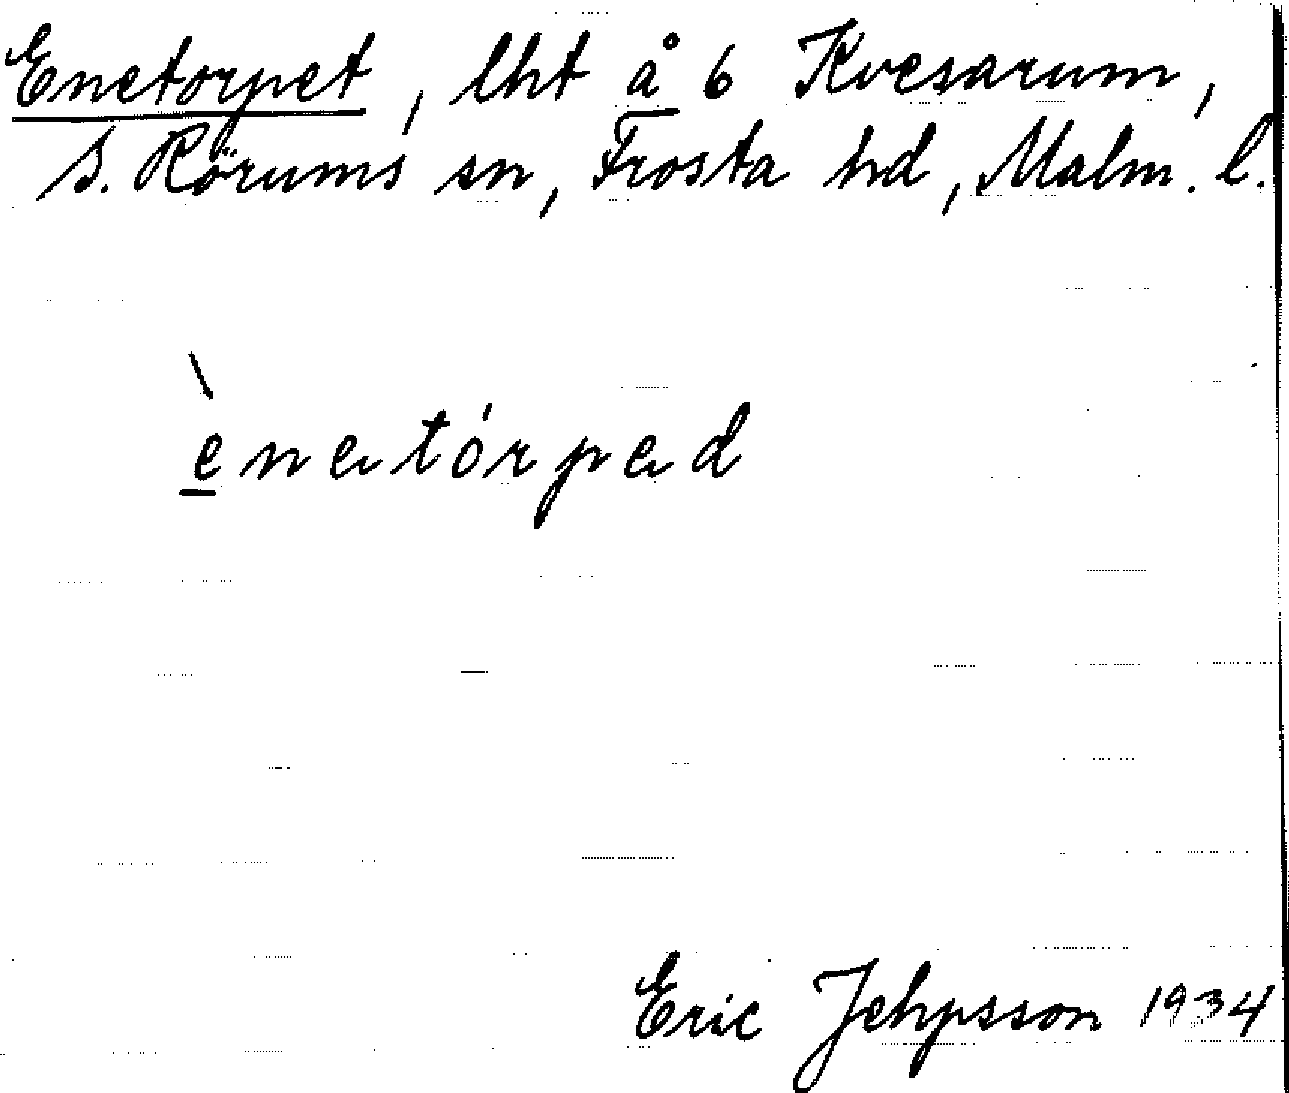 Enetorpet, lht å 6 Kvesarum,
S. Rörums sn, Frosta hd, Malm. l.
ènetórped
Eric Jehpsson 1934